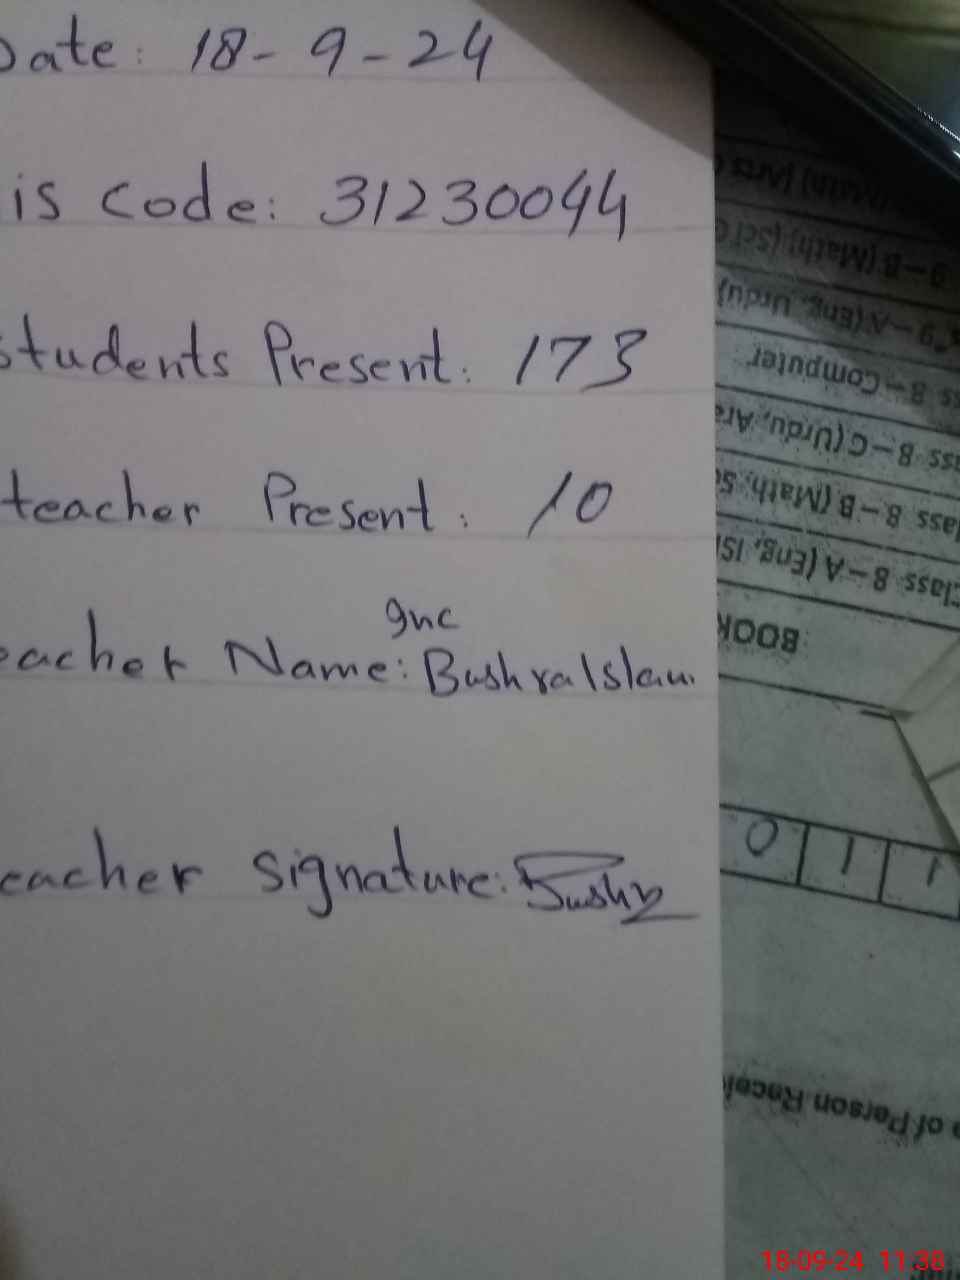 Date: 18-9-24
is code: 31230044
Students Present: 173
teacher Present: 10
Inc
eacher Name: Bushra Islam
eacher signature: Bushra
(Math) (Arts
9-B (Math) (Sci
9-A (Eng, Urdu)
ss 8-Computer
ass 8-C (Urdu, Ara
lass 8-B (Math, Sc
Class 8-A (Eng, ISl
BOOK
0 1 1
of Person Recei
18-09-24 11:38